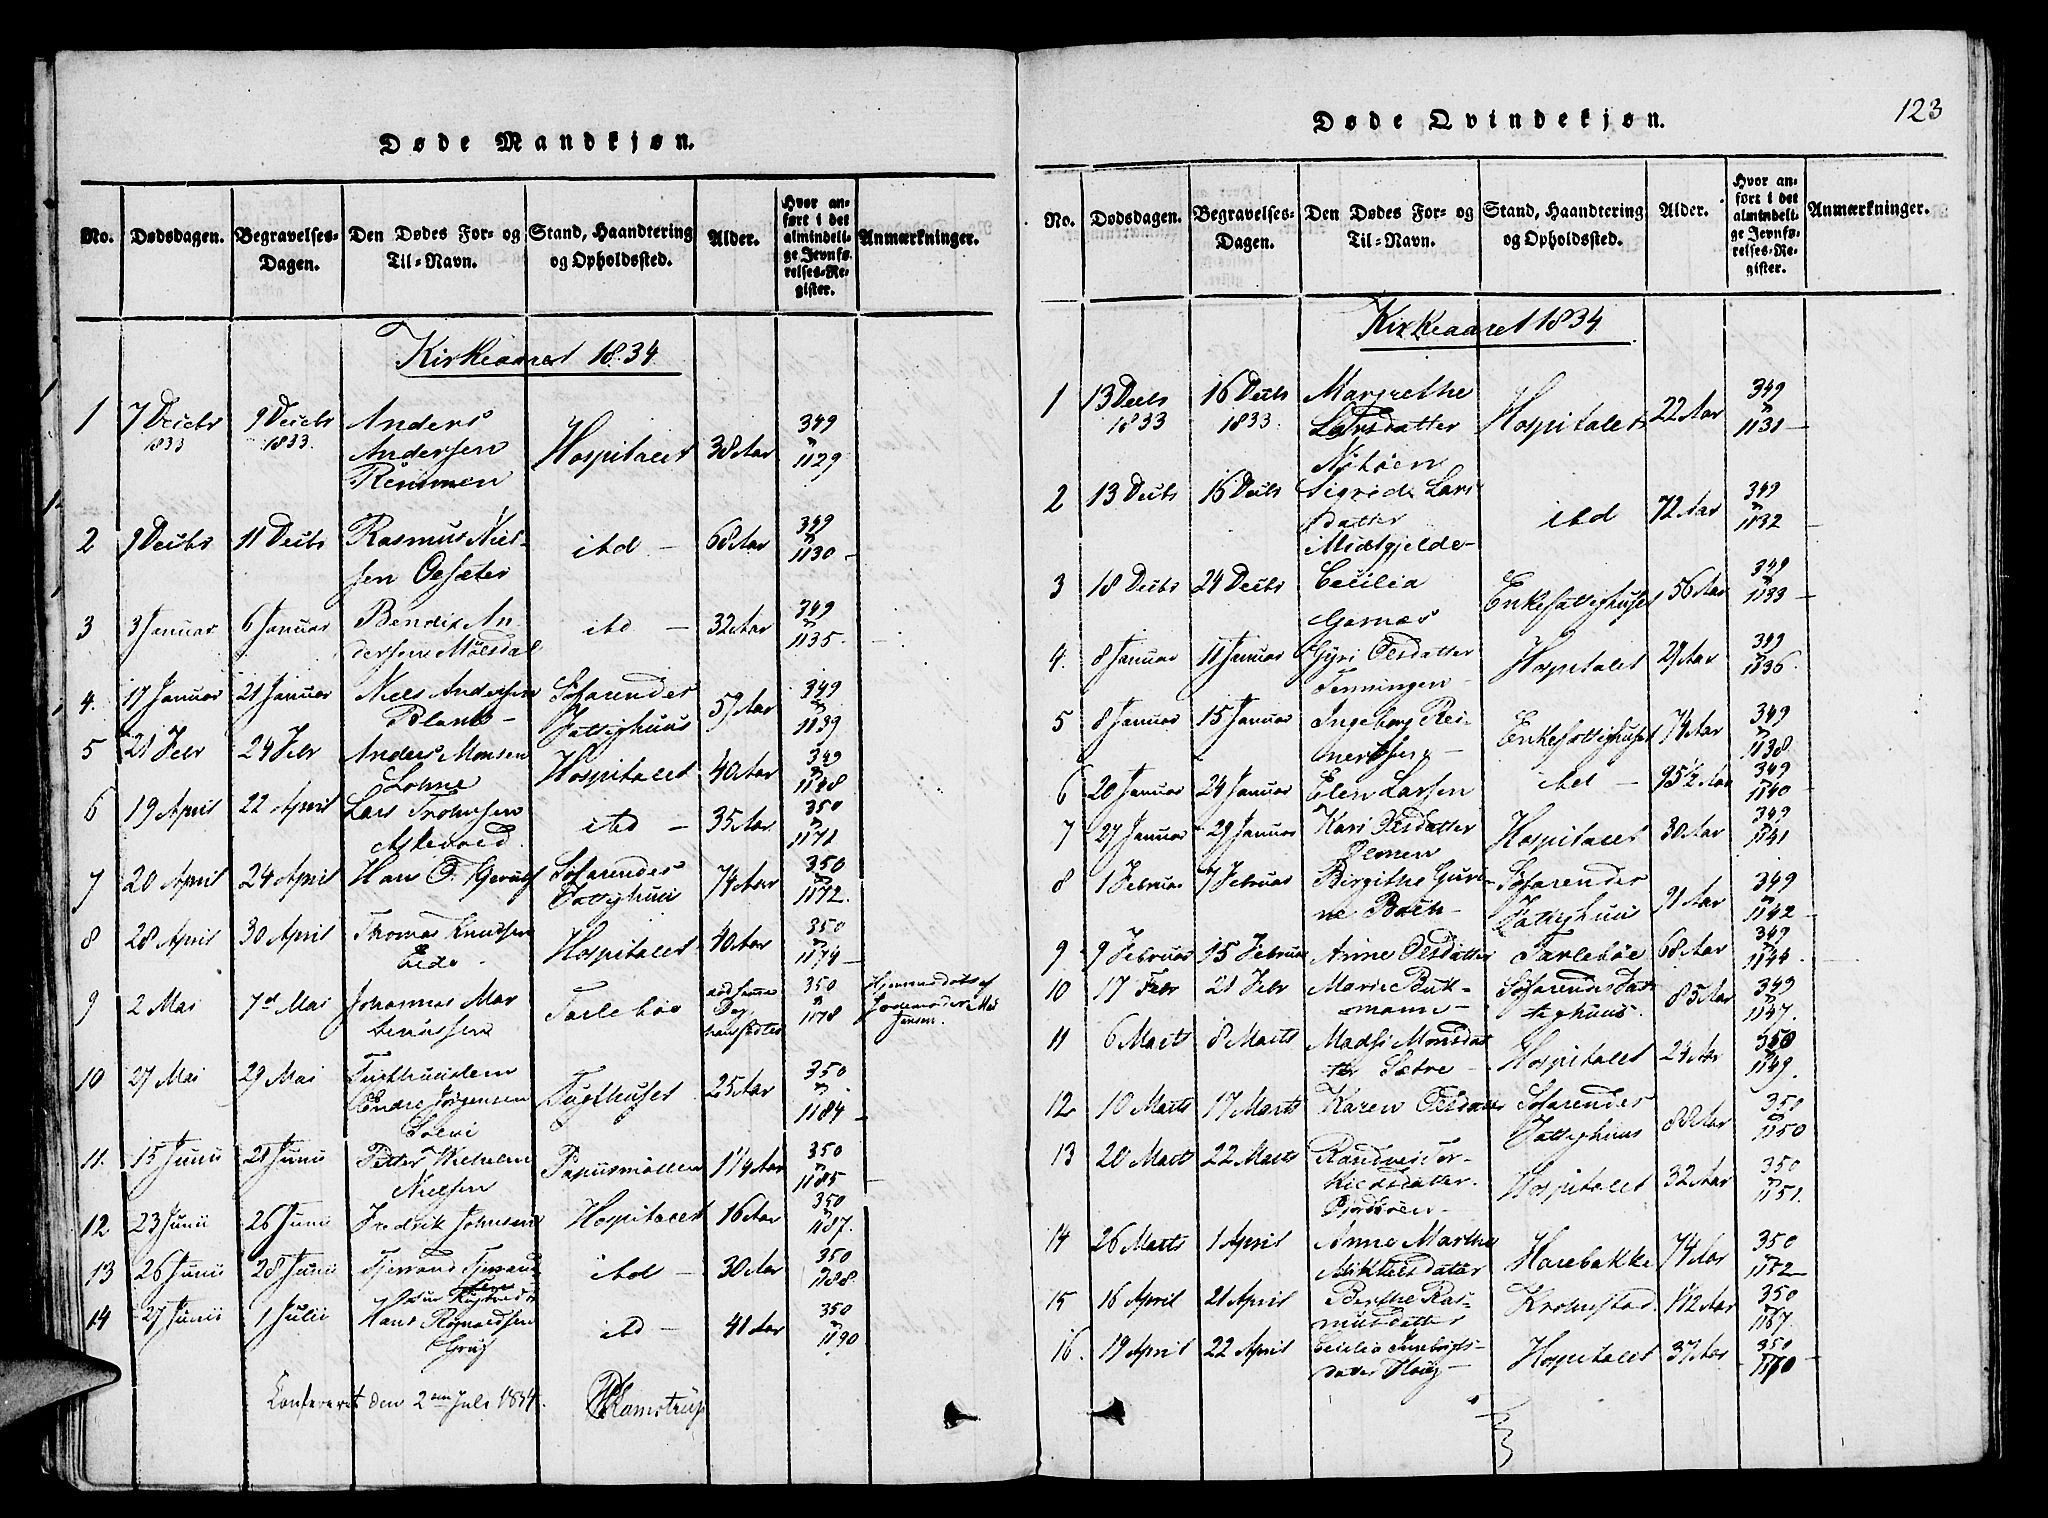 Døde Mandkjøn.
No. Dødsdagen. Begravelses-Dagen. Den Dødes For- og Til-Navn. Stand, Haandtering og Opholdssted. Alder. Hvor anført i det almindelige Jevnførelses-Register. Anmærkninger.
Kirkeaaret 1834
1 7 Decbr 1833 9 Decbr 1833. Anders Andersen Hospitalet 38 Aar 349 1129
2 9 Decbr 11 Decbr Rasmus Nielsen ibd - 68 Aar 349 1130 -
3 3 Januar 6 Januar Bendix Andersen ibd - 32 Aar 349 1135.
4. 17 Januar 21 Januar Niels Andersen Fattighuus 59 Aar 349 1139
5 21 Febr 24 Febr Anders Monsen Lohne Hospitalet 40 Aar 349 1148
6 19 April 22 April Lars Askevold ibd - 35 Aar 350 1171
7 20 April 24 April Hans Søfarendes Fattighuus 74 Aar 350 1172.
8 28 April 30 April Thomas Knudsen Eide Hospitalet 40 Aar 350 1174 -
9 2 Mai 7de Mai Johannes 350 1178 Hjemmedøbt af Jordemoder Jensen.
10 27 Mai 29 Mai Tugthuuslem Endre Jørgensen Tugthuset 25 Aar 350 1184 -
11. 15 Junii 21 Junii Petter Wilhelm Nielsen Papiirmøllen 1 1/4 Aar 350 1185 -
12. 23 Junii 26 Junii Fredrik Johnsen Hospitalet 16 Aar 350 1187.
13 26 Junii 28 Junii ibd - 30 Aar 350 1188.
14 27 Junii 1 Julii Hans ibd - 41 Aar 350 1190
Confereret den 2den Juli 1834. Ramstrup
123
Døde Qvindekjøn.
No. Dødsdagen. Begravelses-Dagen. Den Dødes For- og Til-Navn. Stand, Haandtering og Opholdssted. Alder. Hvor anført i det almindelige Jevnførelses-Register. Anmærkninger.
Kirkeaaret 1834
1 13 Decbr 1833 16 Decbr 1833. Margrethe Larsdatter Hospitalet 22 Aar 349 1131 -
2 13 Decbr 16 Decbr Sigrid Larsdatter Midtgjelde- ibd 72 Aar 349 1132 -
3 18 Decbr 24 Decbr Cecilia Garnæs Enkefattighuset 56 Aar 349 1133 -
4. 8 Januar 11 Januar Gyri Olsdatter Hospitalet 29 Aar 349 1136.
5 8 Januar 15 Januar Ingeborg Enkefattighuset 74 Aar 349 1138.
6 20 Januar 24 Januar Elen Larsen ibd - 95 1/2 Aar 349 1140 -
7 27 Januar 29 Januar Kari Olsdatter Hospitalet 30 Aar 349 1141
8 1 Februar 7 Februar Birgithe Søfarendes Fattighuus 91 Aar 349 1142 -
9 9 Februar 15 Februar Anne Olsdatter Tarlebøe 68 Aar 349 1144 -
10 17 Febr 21 Febr Marie Buttmann - Søfarendes Fattighuus. 85 Aar 349 1147.
11 6 Marts 8 Marts Madsi Monsdatter Sætre - Hospitalet 24 Aar 350 1149.
12 10 Marts 17 Marts Karen Olsdatter Søfarendes Fattighuus 88 Aar 350 1150
13 20 Marts 22 Marts Randvei Hospitalet 32 Aar 350 1151.
14 26 Marts 1 April Anne Marthe Mikkelsdatter Harebakke 74 Aar 350 1152 -
15 16 April 21 April Berthe Rasmusdatter Krohnstad. 1 1/2 Aar 350 1167.
16. 19 April 22 April Cecilia Hospitalet 37 Aar 350 1170 -